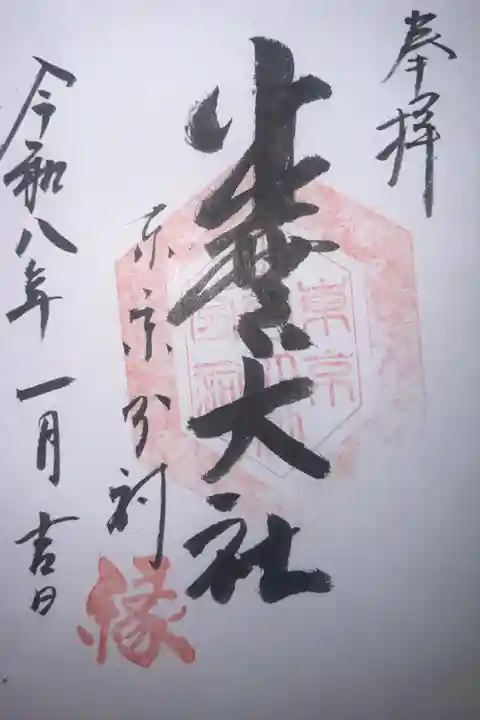 奉拝
出雲大社
東京分祠
令和八年一月吉日
縁
東京